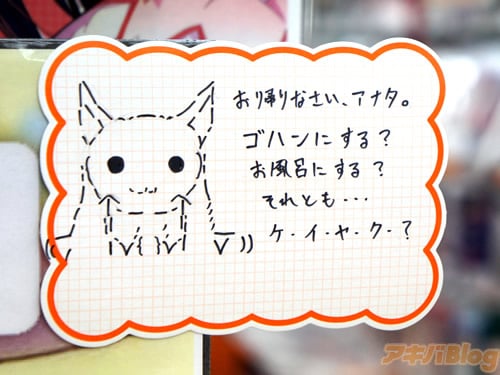 おり帰りなさい、アナタ。
ゴハンにする?
お風呂にする?
それとも・・・
ケ・イ・ヤ・ク・?
アキバBlog